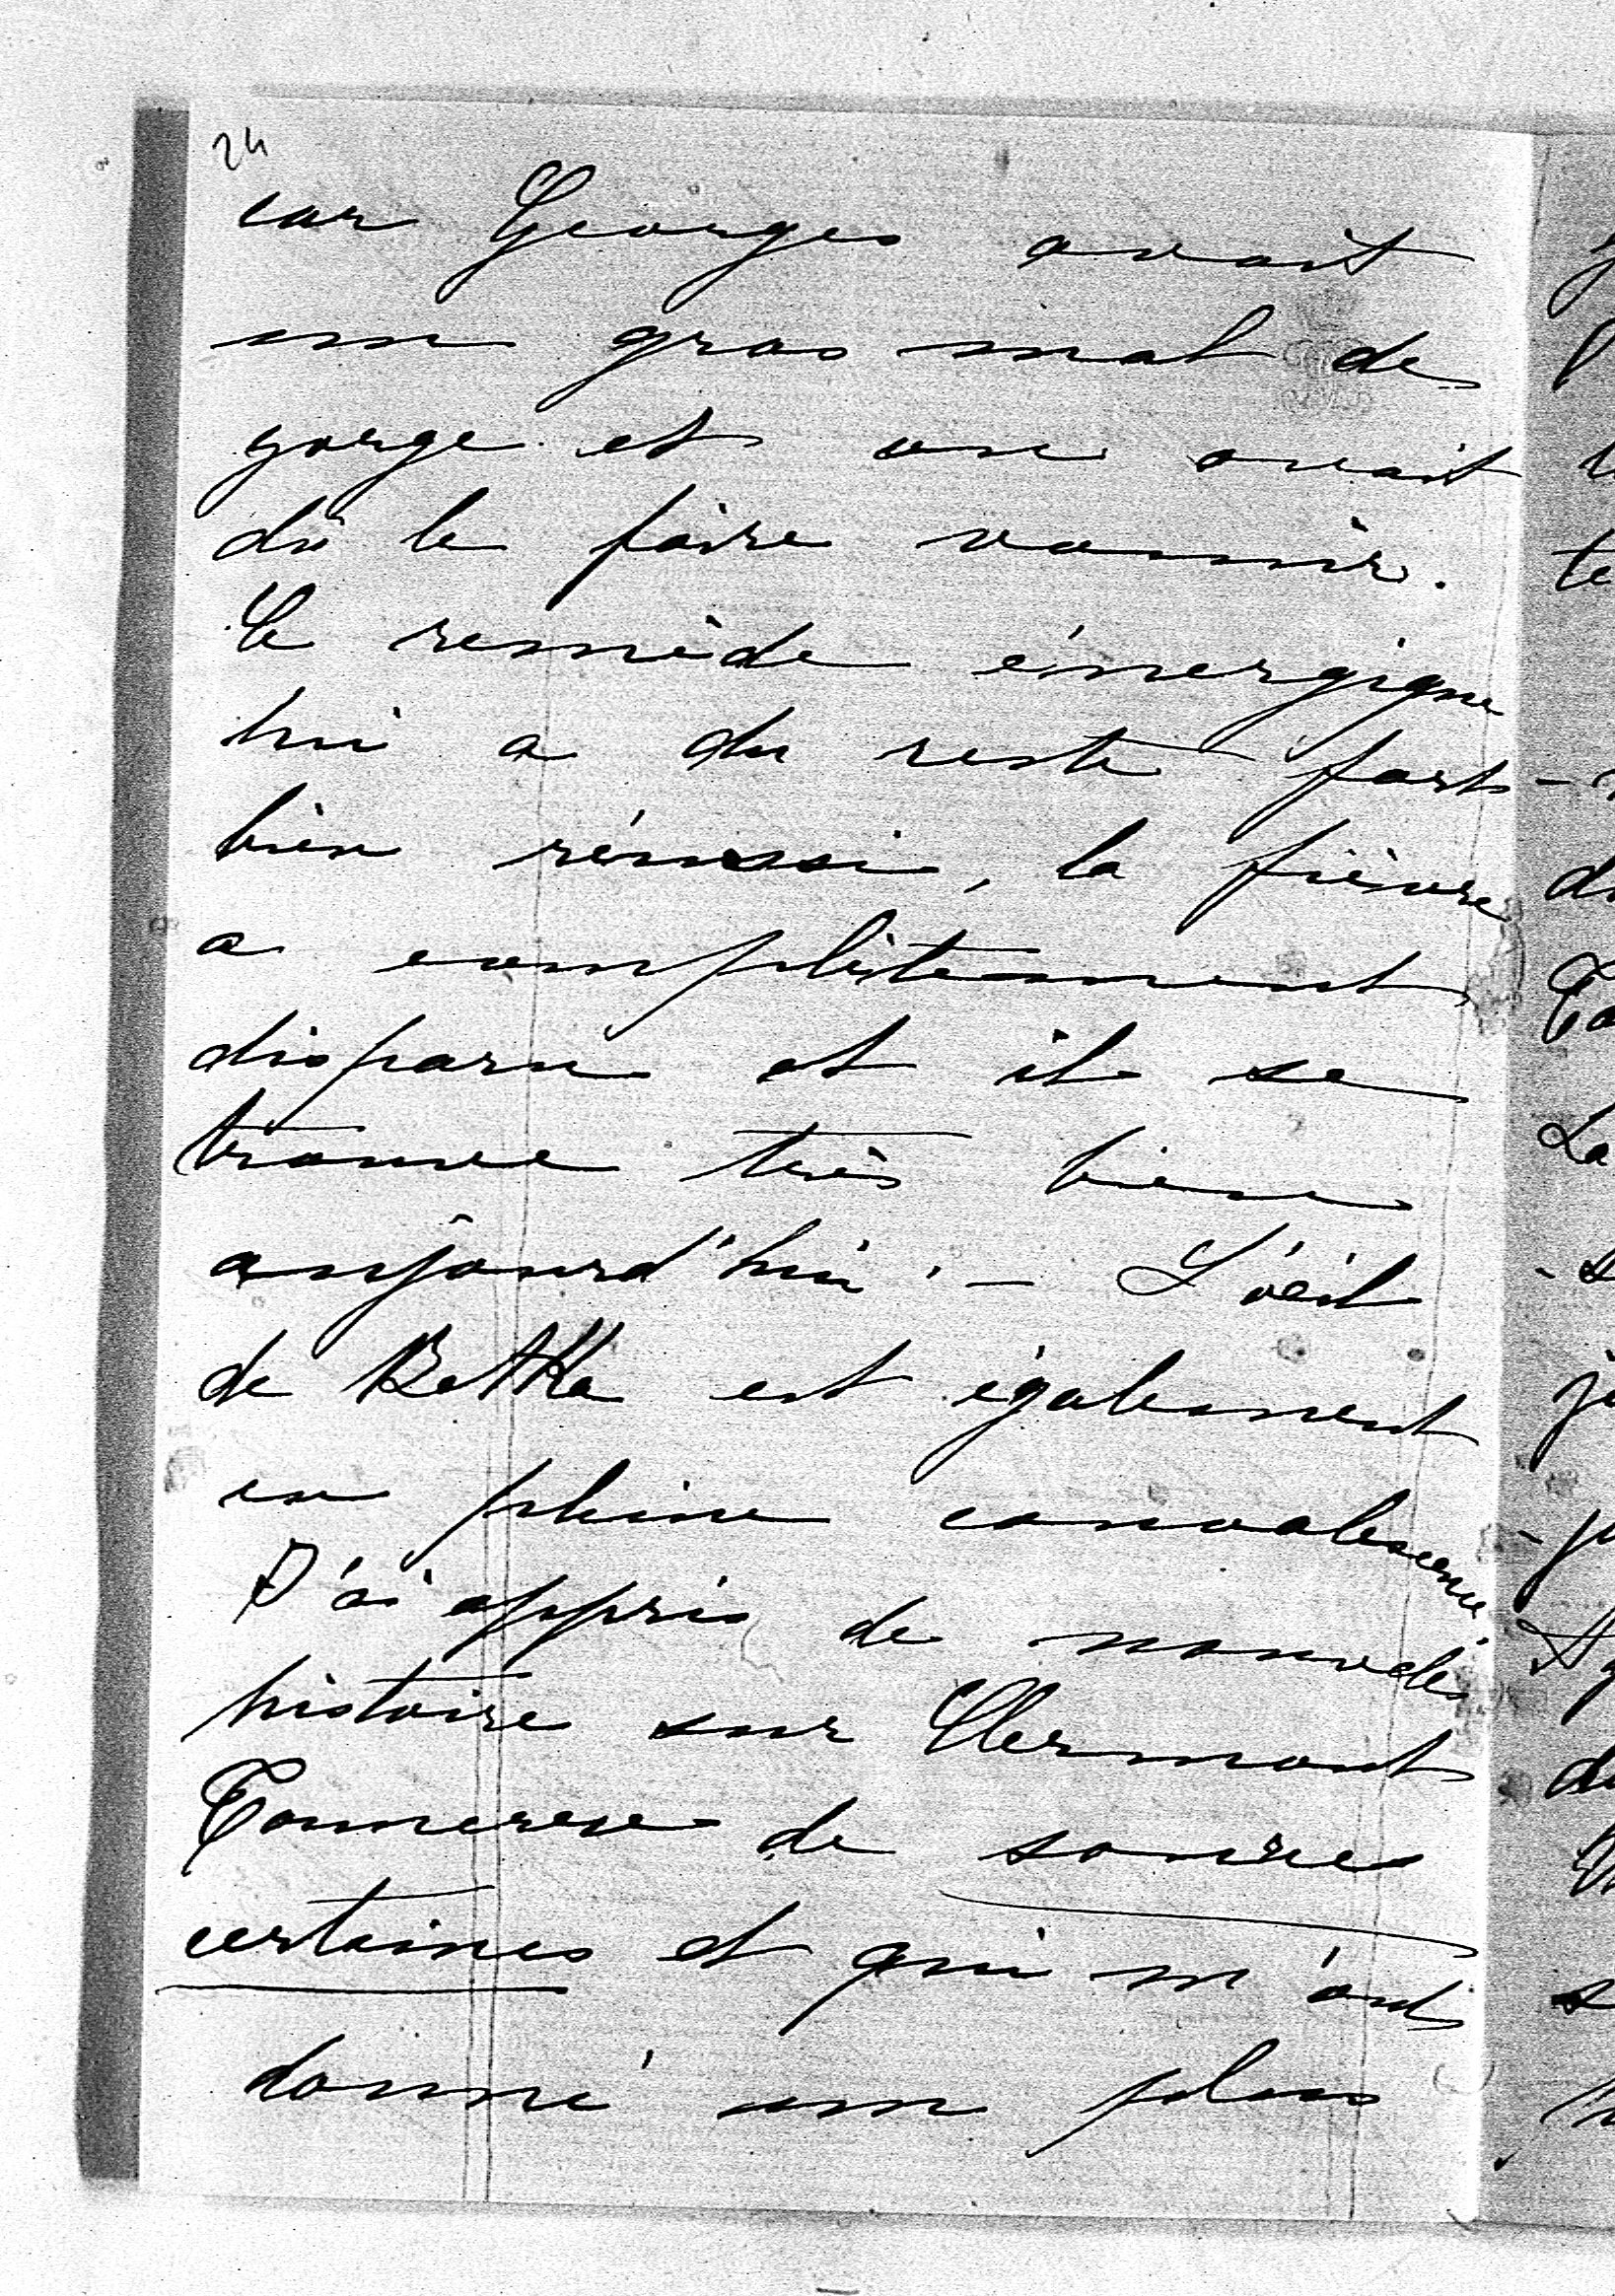 24
car Georges avait
un gros mal de
gorge et on avait
dû le faire vomir.
Le remède énergique
lui a du reste fort
bien réussi, la fièvre
a complètement
disparu et il se
trouve très bien
aujourd'hui. — L'œil
de Betka est également
en pleine convalescence.
J'ai appris de nouvelles
histoire sur Clermont
Tonnerre de source
certaines et qui m'ont
donné un plus